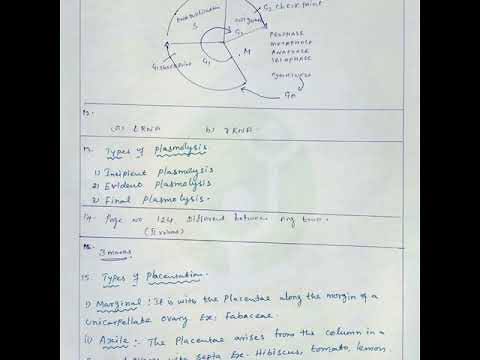 G2 checkpoint
S
G2
M
G1
G1 checkpoint
PROPHASE
METAPHASE
ANAPHASE
TELOPHASE
G0
a) tRNA b) rRNA
13. Types of plasmolysis
1) Incipient plasmolysis
2) Evident plasmolysis
3) Final plasmolysis
14. Page no 124 Different between any two.
(II volume)
3 marks
15. Types of placentation.
i) Marginal : It is with the placentae along the margin of a
unicarpellate ovary. Ex: Fabaceae.
ii) Axile :- The Placentae arises from the column in a
with septa Ex- Hibiscus, tomato, lemon